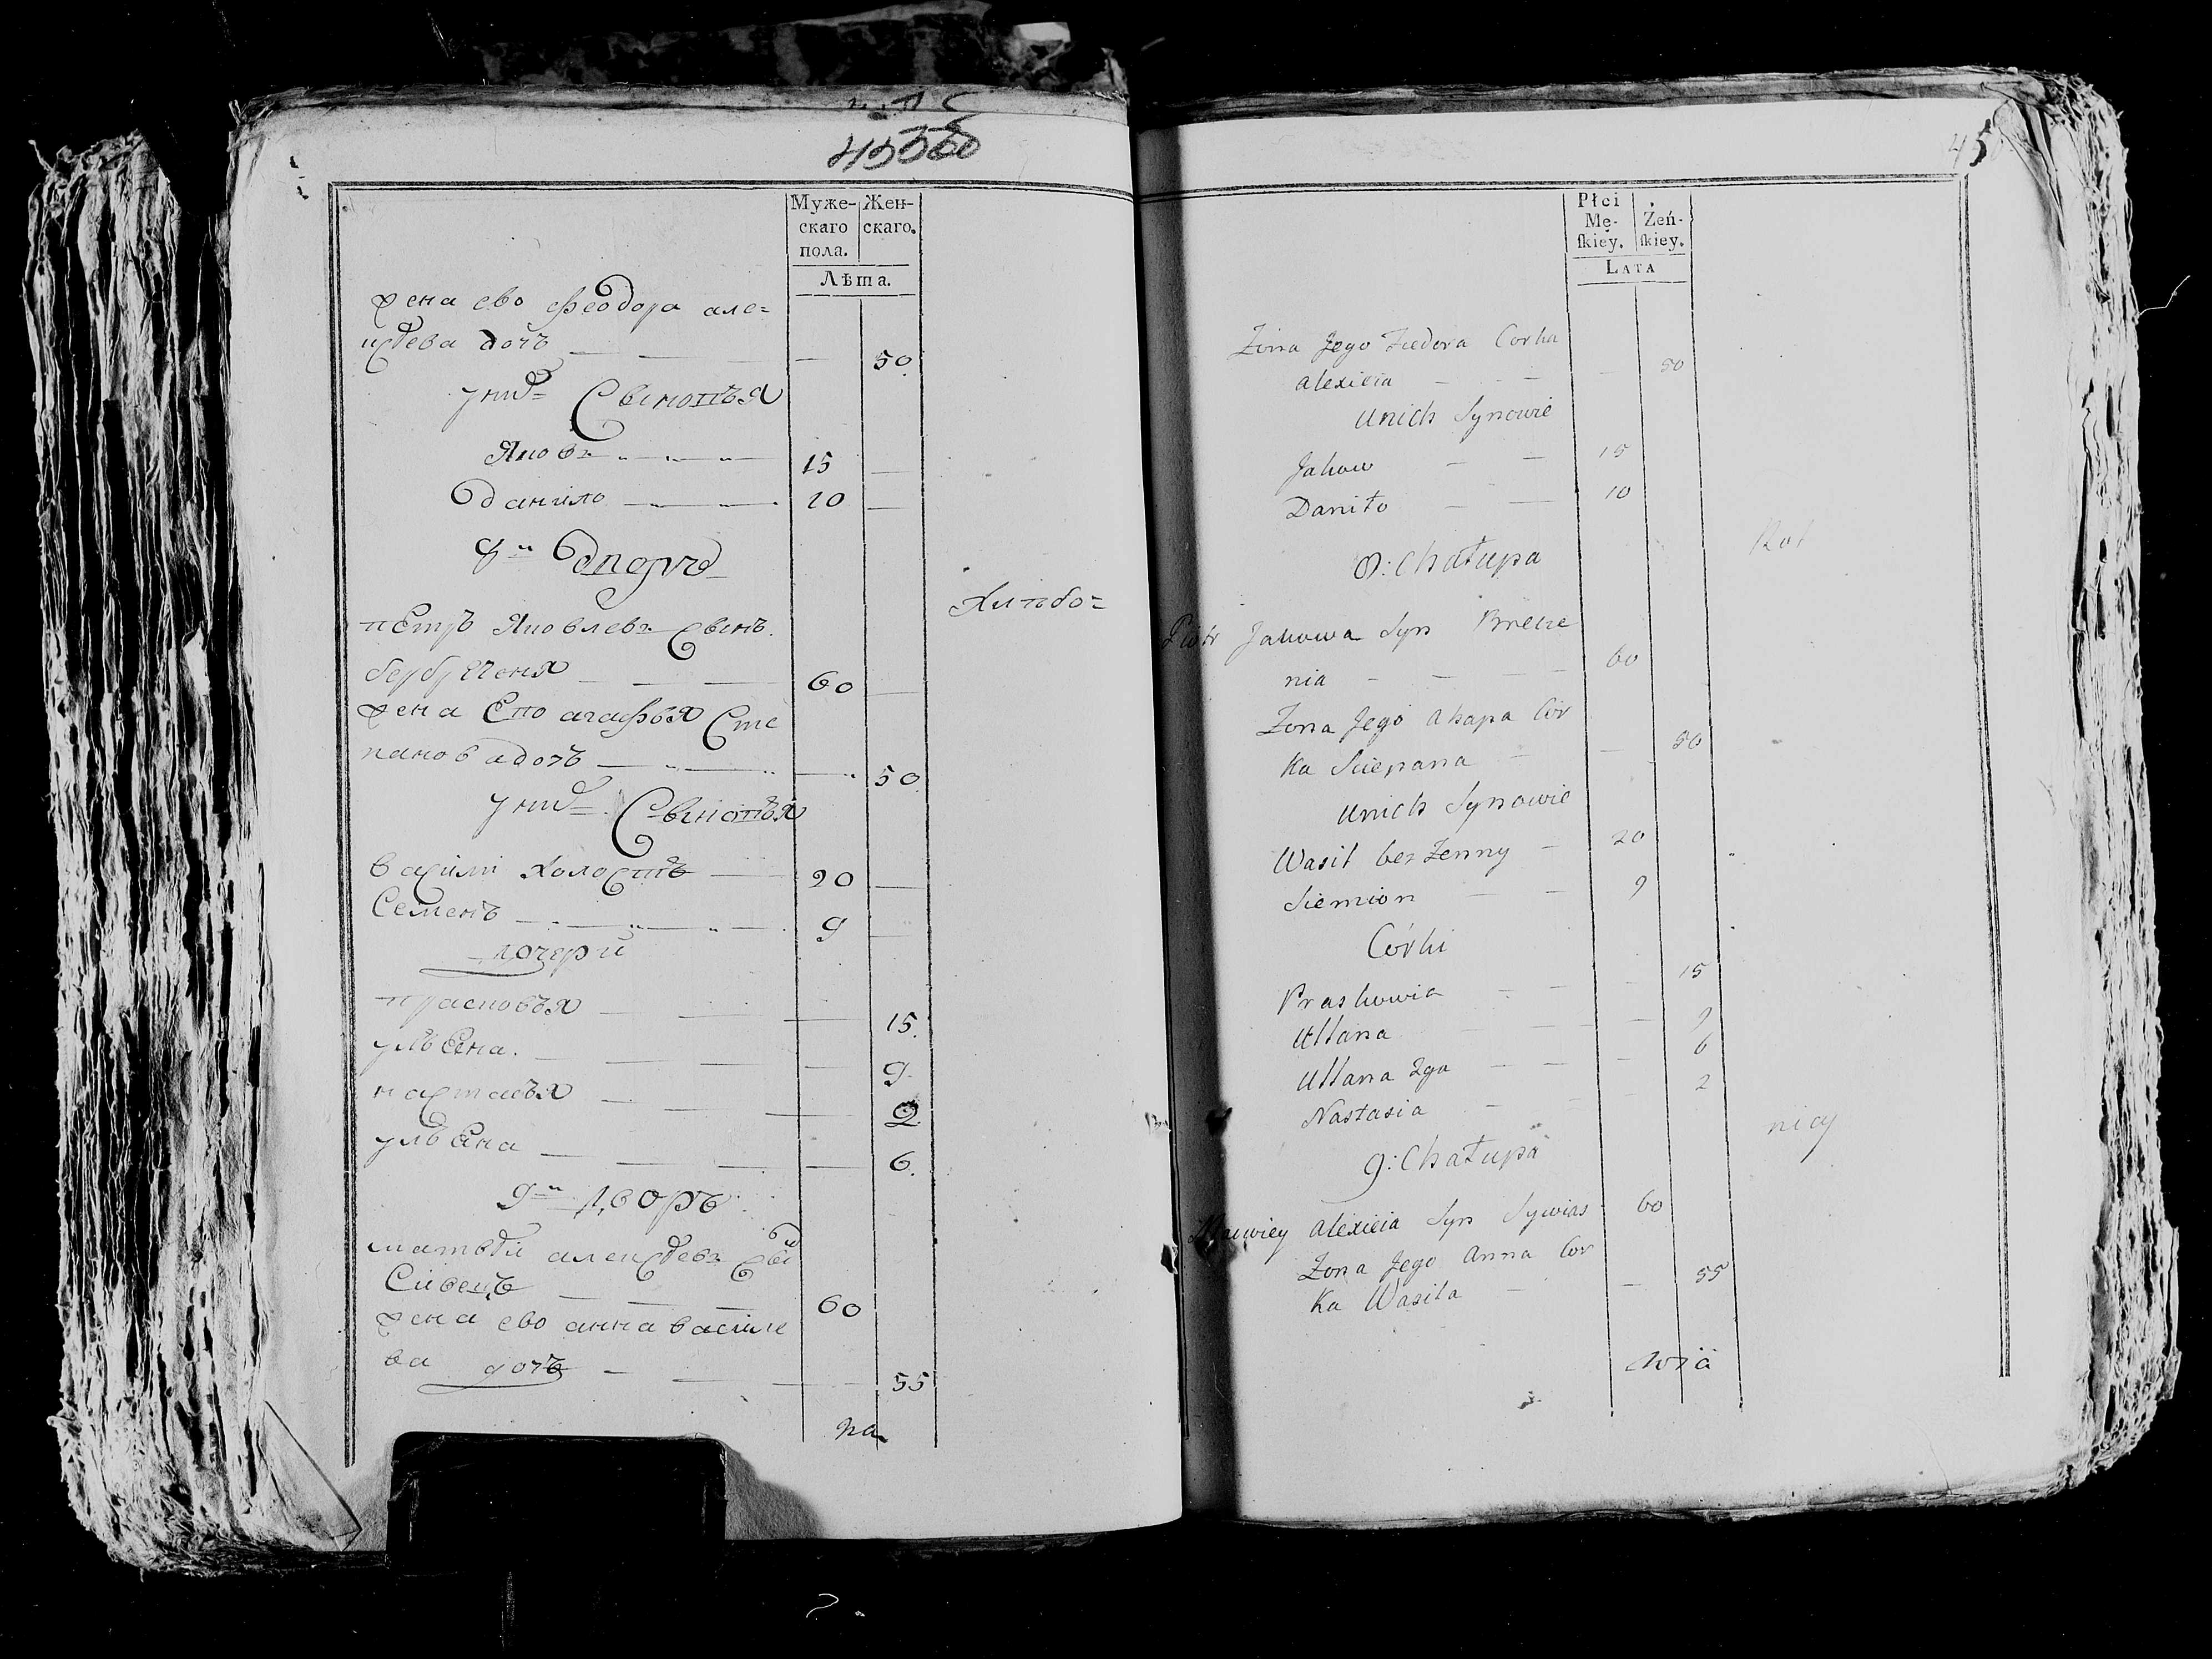 Муже-
скаго
пола.
Жен-
скаго.
Лѣта.
жена ево феодора але=
ксѣева дочь — — — 50
у нихъ Сыновья
Яковъ — — 15 —
данило — — 10 —
8й дворъ
Хлѣбо=
петръ Яковлевъ Сынъ
60 —
жена Ево агафья Сте
панова дочь — — — 50
у нихъ Сыновья
василий холостъ — 20 —
Семенъ — — 9 —
дочери
прасковья — — — 15.
ульЕяна. — — — 9.
настасья — — — 2
ульЕяна — — — 6.
9й дворъ
матвѣй алексѣевъ Сынъ
Сивецъ — — 60
жена ево анна василье
ва дочь — — — 55
на
45
Płci
Mę-
ſkiey.
Żeń-
ſkiey.
LATA
Żona Jego Fiedora Corka
Alexieia — — — 50
Unich Synowie
Jakow — — 15
Daniło — — 10
8: Chałupa
Rol
Piotr Jakowa Syn
nia — — 60
Zona Jego Ahapa Cor
ka Sciepana — — 50
Unich Synowie
Wasil bez Zenny — 20
Siemion — — 9
Córki
Praskowia — — 15
Ullana — — — 9
Ullana 2ga — — — 6
Nastasia — — — 2
nicy
9: Chałupa
Mawiey Alexieia Syn Sywias 60
Zona Jego Anna Cor
ka Wasila — — 55